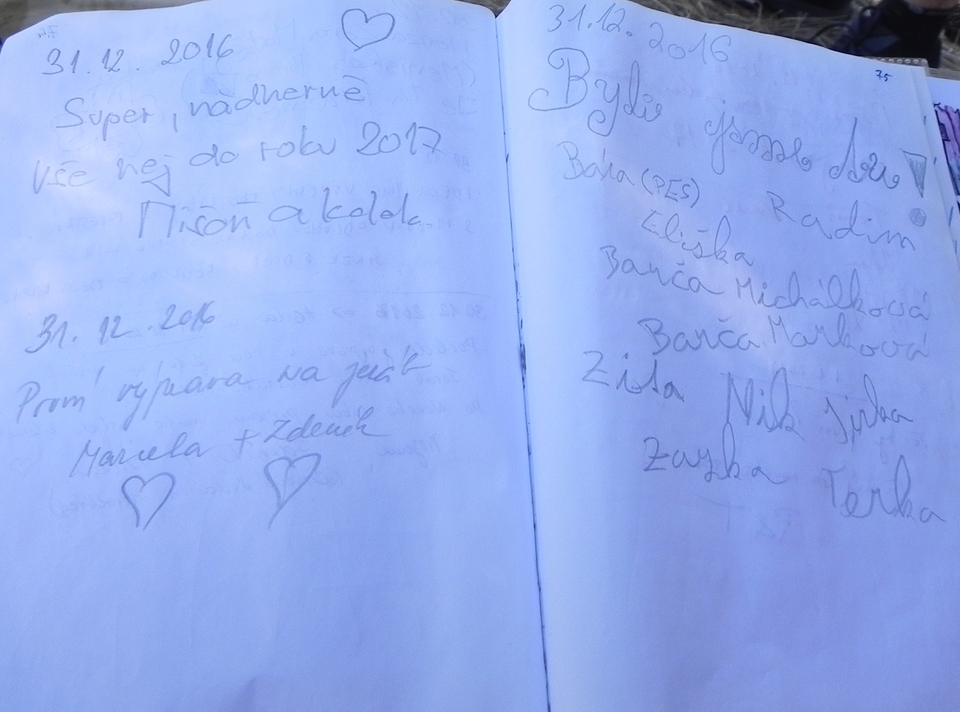 74
31.12.2016
Super, nádherně
Vše nej do roku 2017
Mišoň a kolok
31.12.2016
První výprava na ješák
Marcela + Zdeněk
75
31.12.2016
Byli jsme
Bára (PES) Radim
Eliška
Barča Michálková
Barča Marková
Zita Nik Jirka
Terka